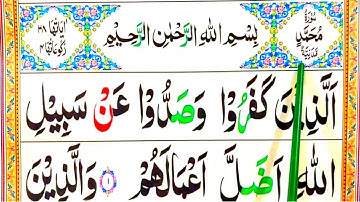 سُورَةُ مُحَمَّدٍ مَدَنِيَّةٌ
بِسْمِ اللّٰهِ الرَّحْمٰنِ الرَّحِيْمِ
اٰيَاتُهَا ٣٨ رُكُوْعَاتُهَا ٤
اَلَّذِيْنَ كَفَرُوْا وَصَدُّوْا عَنْ سَبِيْلِ
اللّٰهِ اَضَلَّ اَعْمَالَهُمْ ۝١ وَالَّذِيْنَ